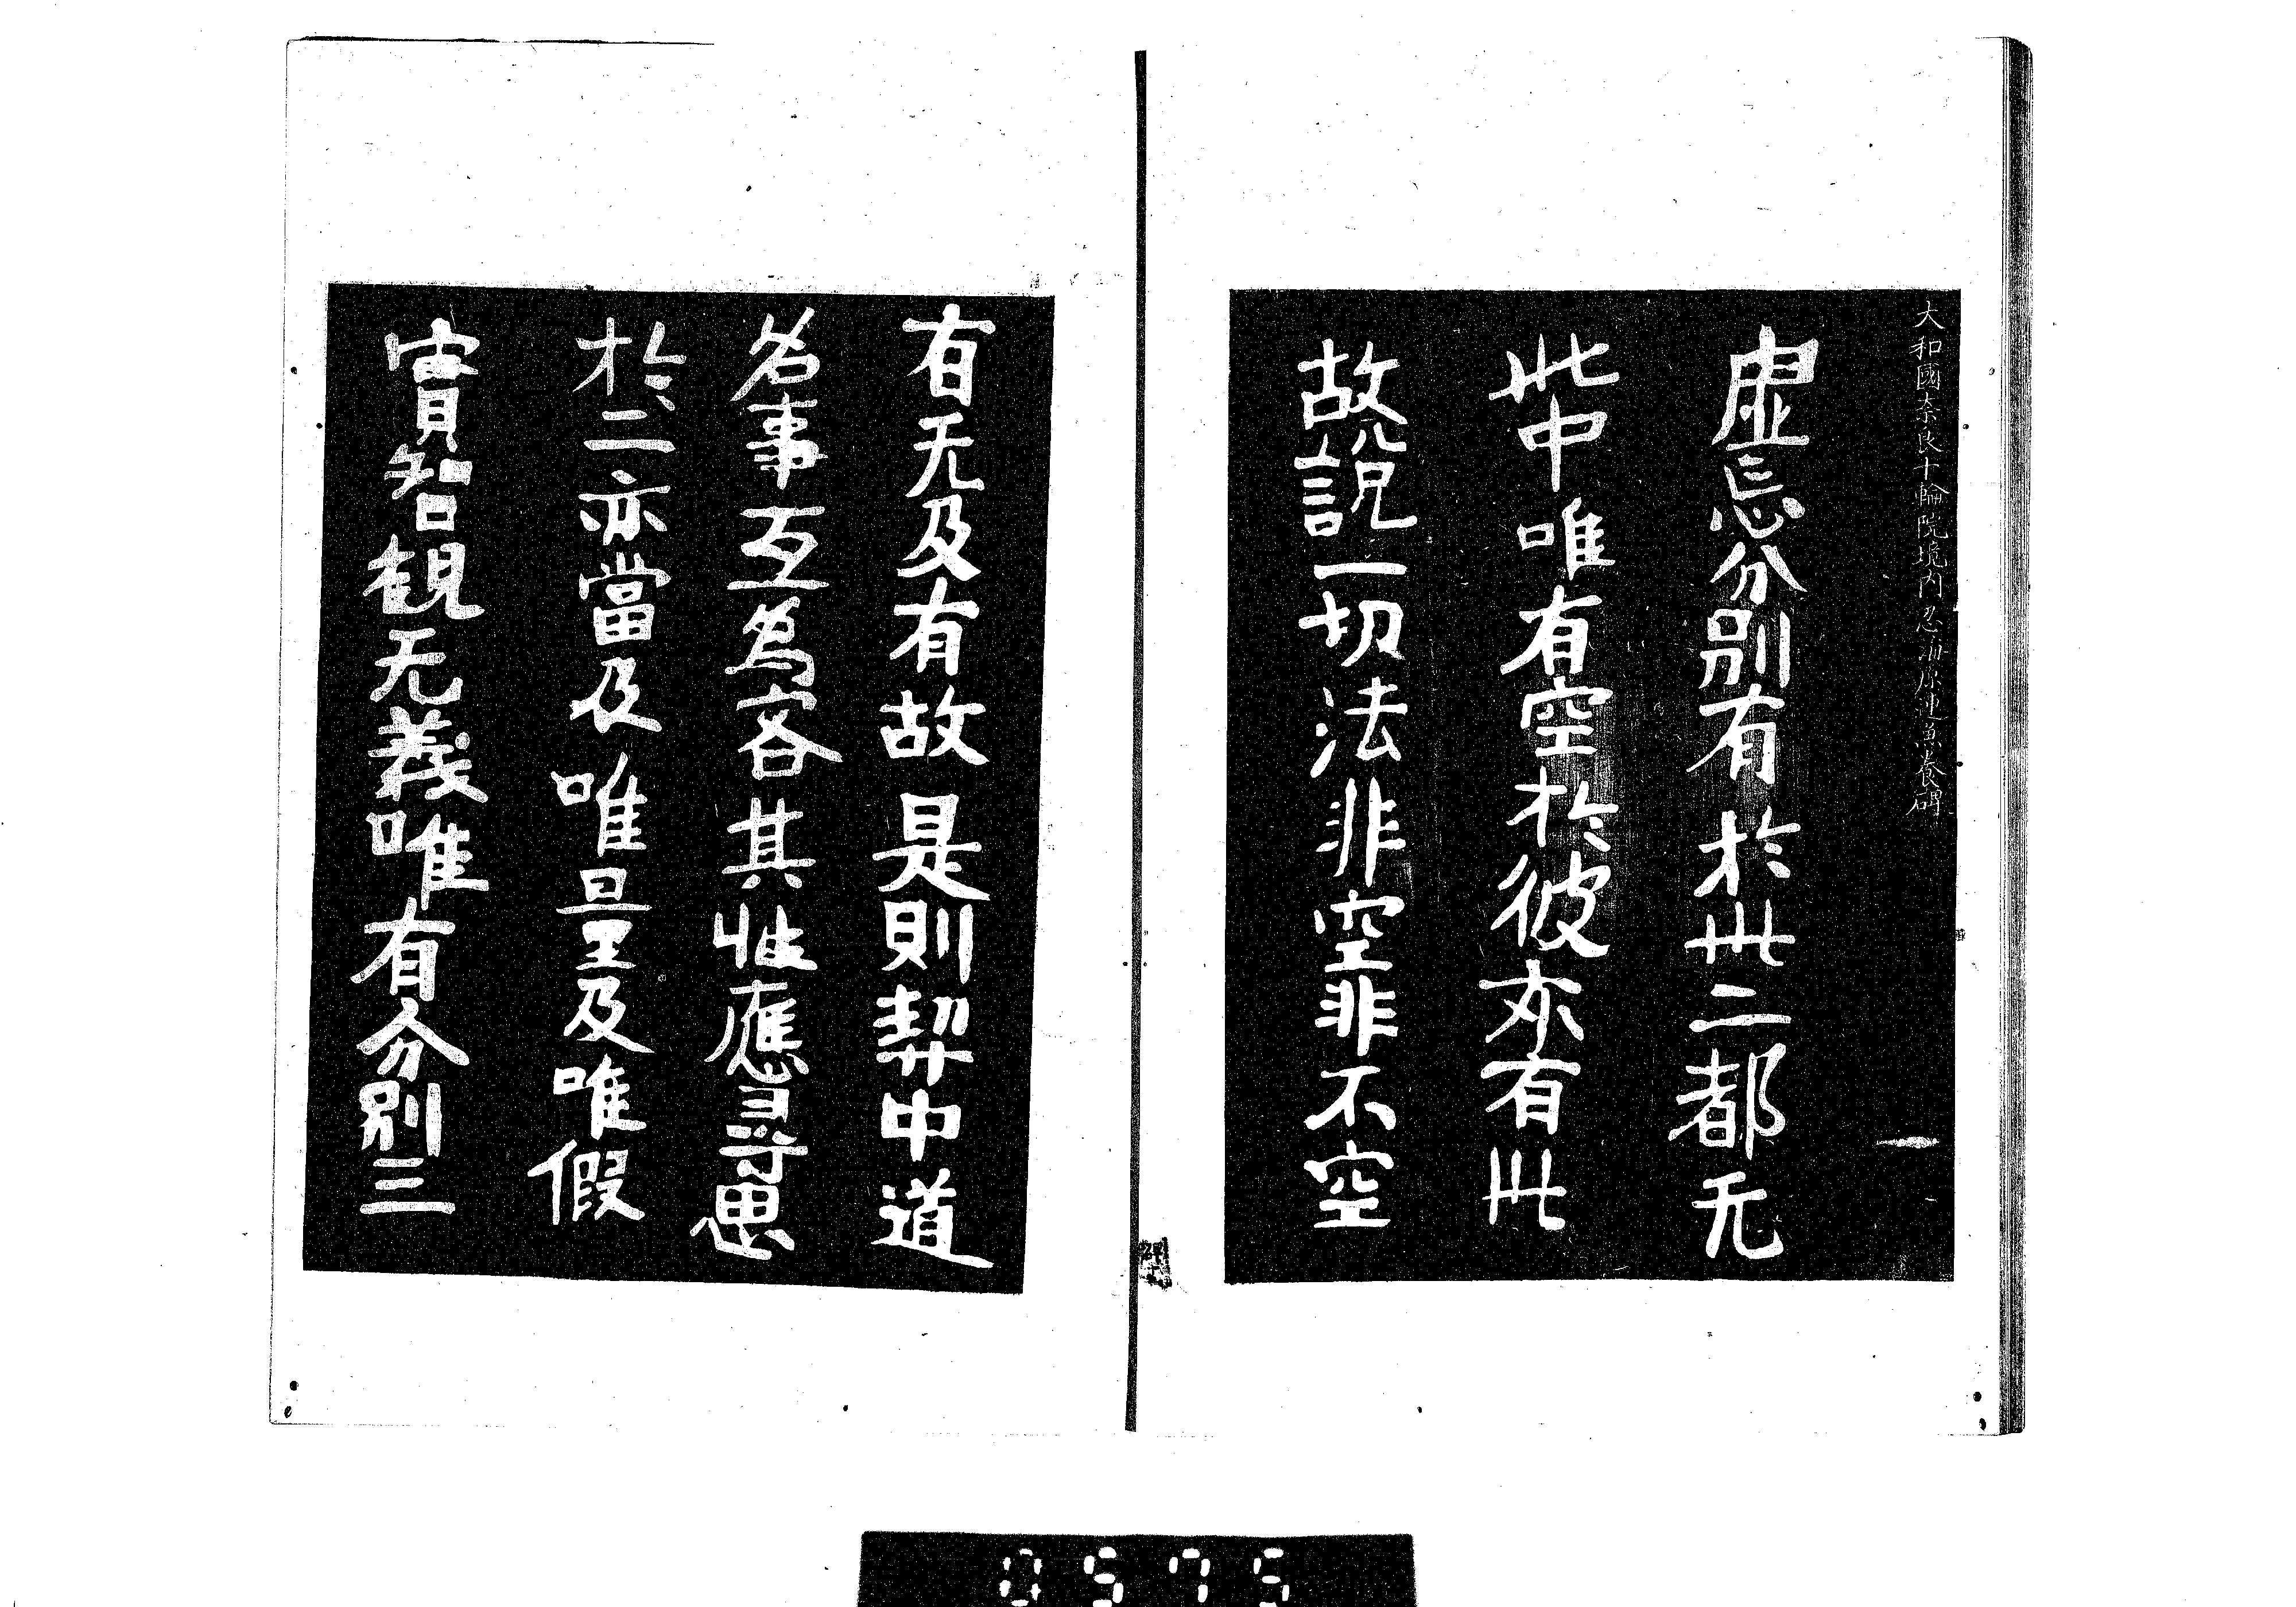 大和國奈良十輪院境内忍海原連魚養碑
虚忘分別有於此二都无
此中唯有空於彼亦有此
故説一切法非空非不空
有无及有故是則契中道
名事互為客其性應尋思
於二亦當及唯量及唯假
實智観无義唯有分別三
碑
0575